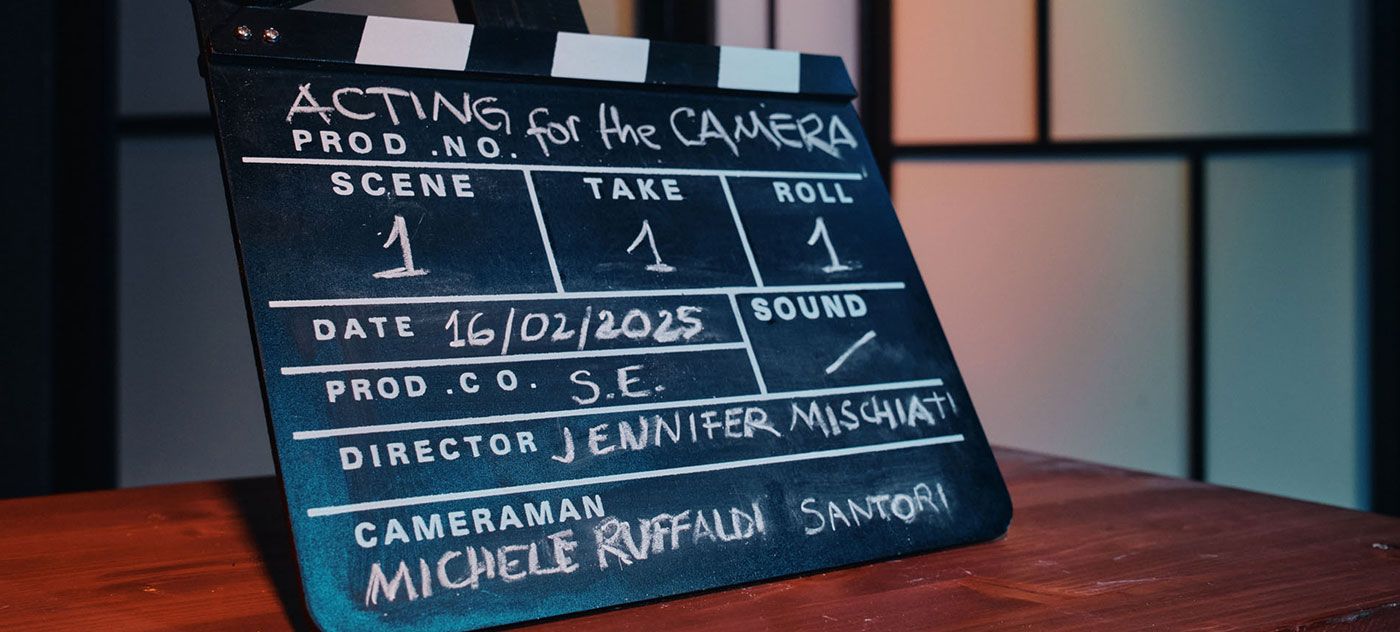 ACTING for the CAMERA
PROD .NO.
SCENE TAKE ROLL
1 1 1
DATE 16/02/2025 SOUND
/
PROD .CO. S.E.
DIRECTOR JENNIFER MISCHIATI
CAMERAMAN
MICHELE RUFFALDI SANTORI